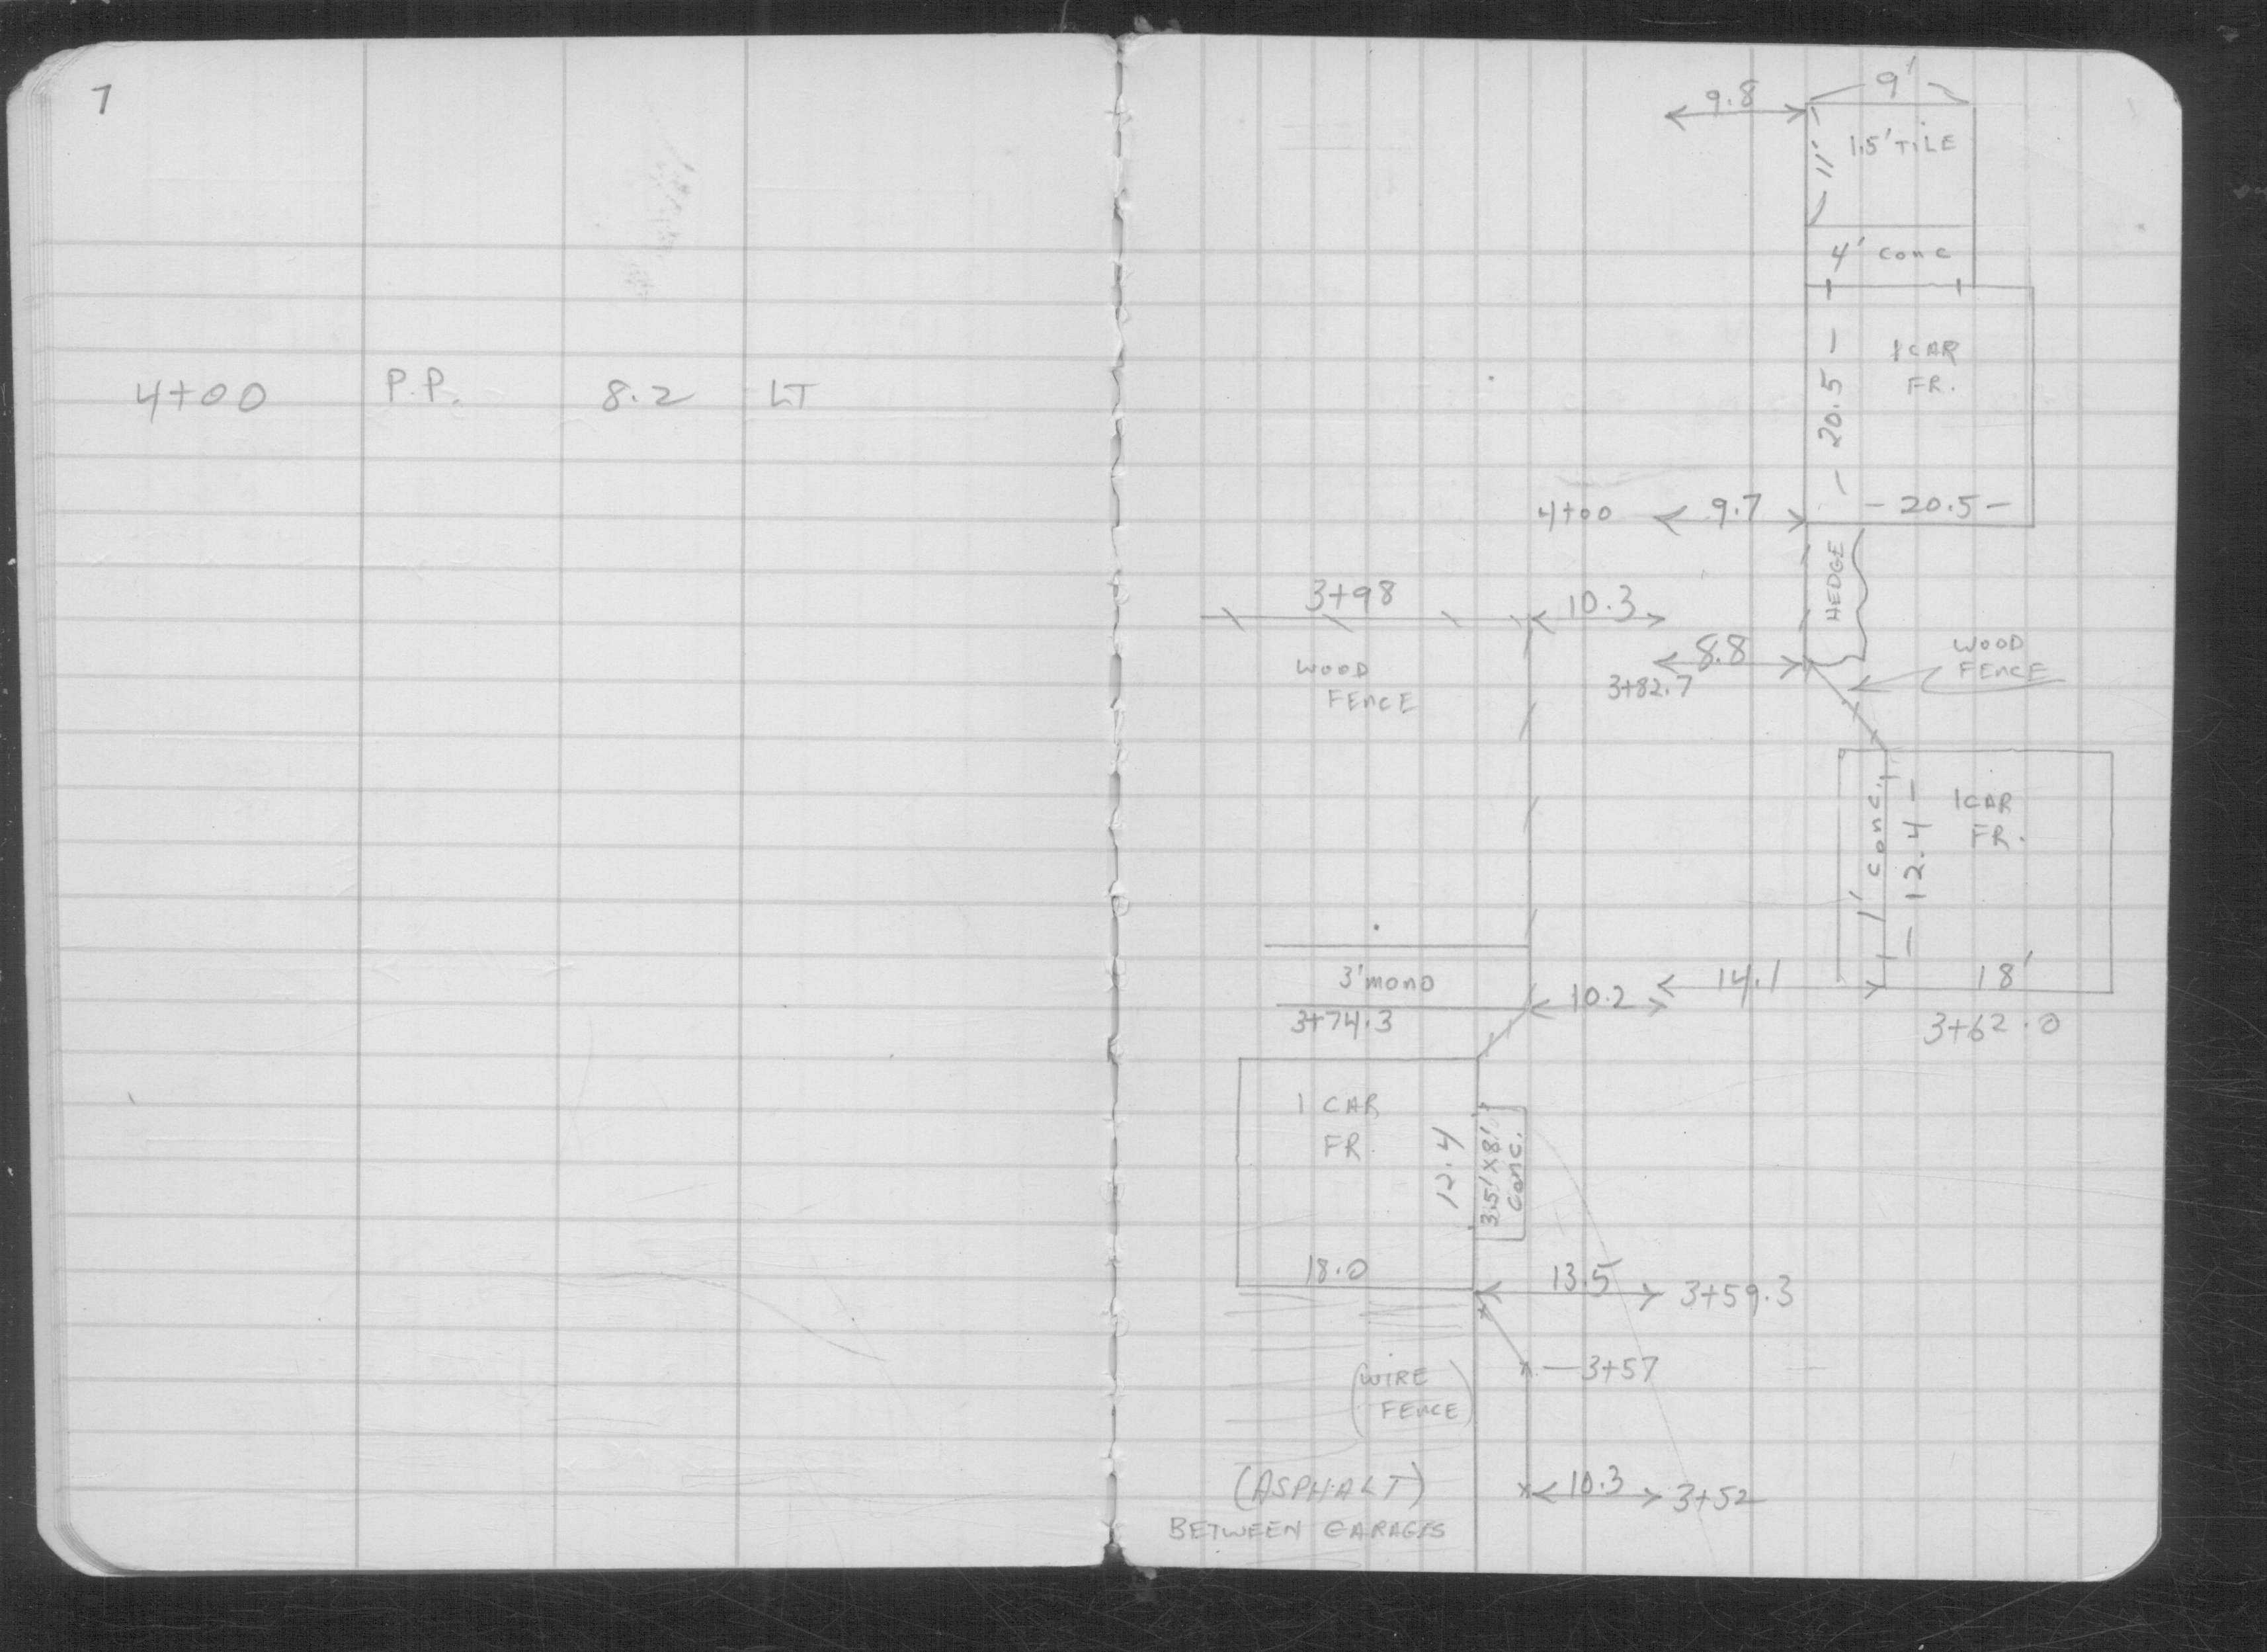 7
4+00 P.P. 8.2 LT
9.8
9'
11'
1.5' TILE
4' conc
1 CAR
FR.
20.5
4+00 9.7
20.5
HEDGE
3+98
10.3
WOOD
FENCE
8.8
3+82.7
WOOD
FENCE
1' conc.
12.4
1 CAR
FR.
3' mono
3+74.3
10.2
14.1
18'
3+62.0
1 CAR
FR.
12.4
3.5' X 8'
conc.
18.0
13.5
3+59.3
3+57
(WIRE
FENCE)
(ASPHALT)
BETWEEN GARAGES
10.3
3+52